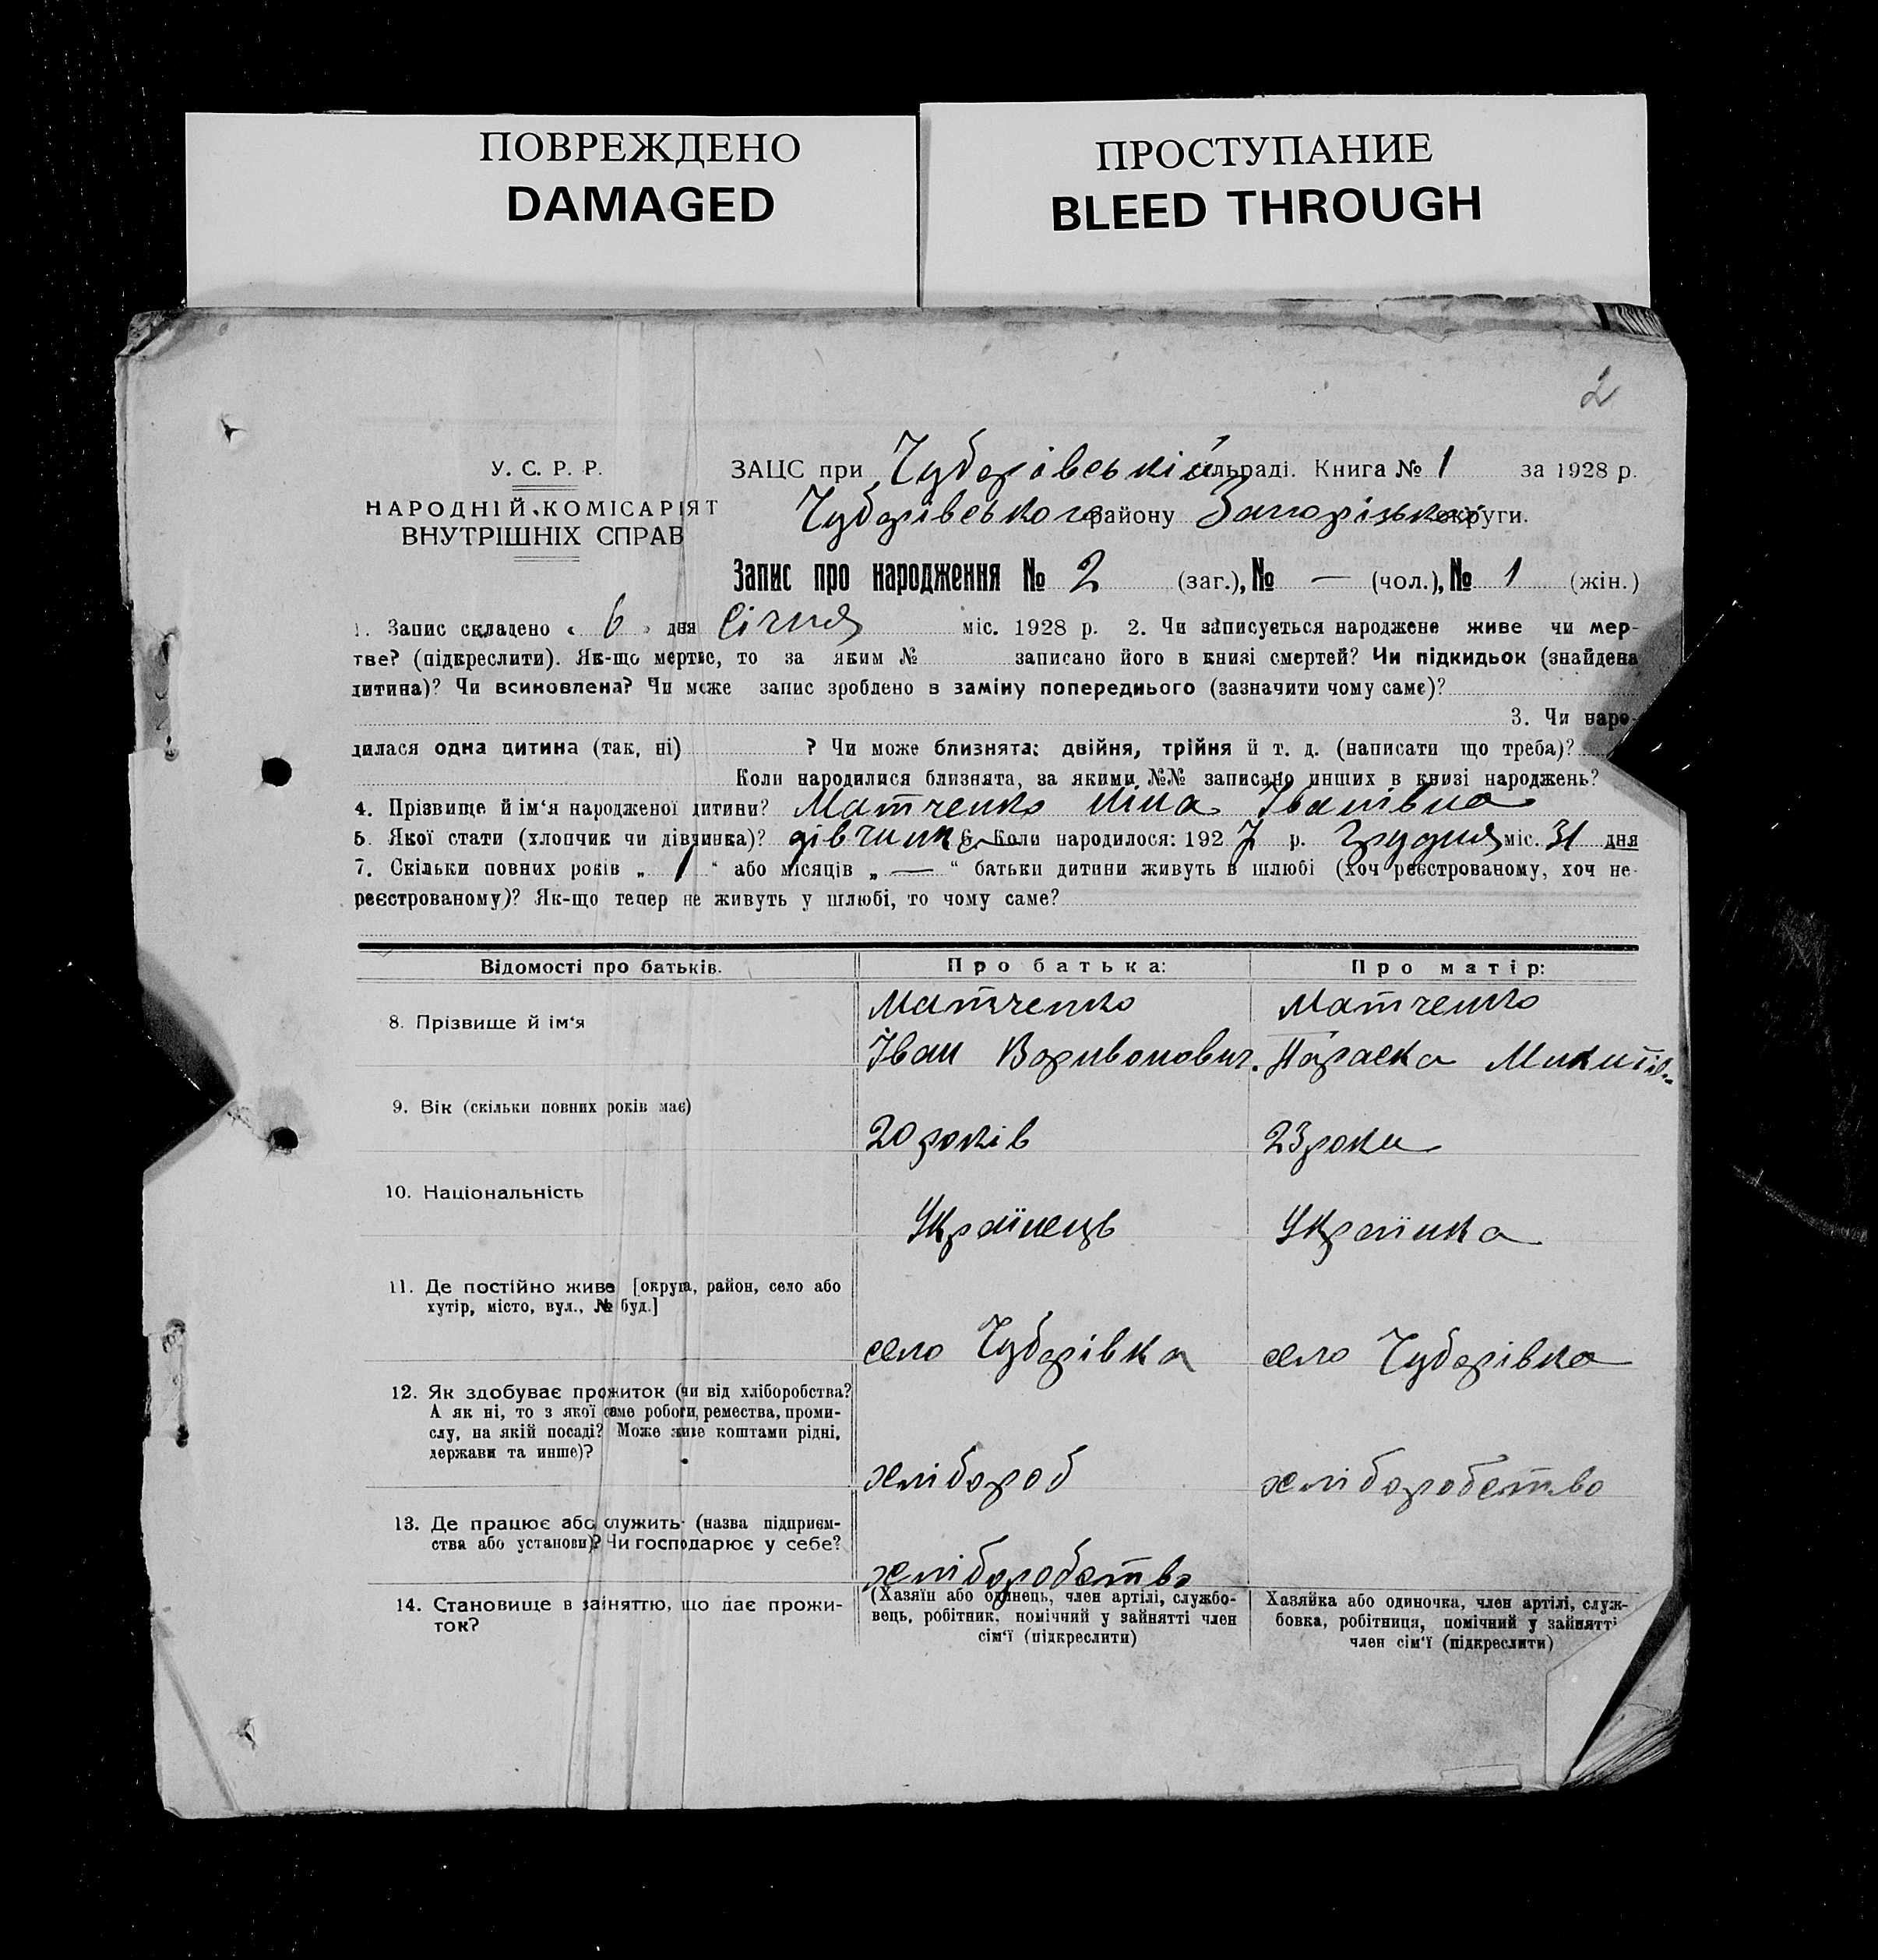 ПОВРЕЖДЕНО
DAMAGED
ПРОСТУПАНИЕ
BLEED THROUGH
2
У. С. Р. Р.
НАРОДНІЙ КОМІСАРІЯТ
ВНУТРІШНІХ СПРАВ
ЗАЦС при Чубарівській сільраді. Книга № 1 за 1928 р.
Чубарівського району Запорізької округи.
Запис про народження № 2 (заг.), № — (чол.), № 1 (жін.)
1. Запис складено « 6 » дня Січня міс. 1928 р. 2. Чи записується народжене живе чи мер-
тве? (підкреслити). Як-що мертве, то за яким № записано його в книзі смертей? Чи підкидьок (знайдена
дитина)? Чи всиновлена? Чи може запис зроблено в заміну попереднього (зазначити чому саме)?
3. Чи наро-
дилася одна дитина (так, ні) ? Чи може близнята: двійня, трійня й т. д. (написати що треба)?
Коли народилися близнята, за якими №№ записано инших в книзі народжень?
4. Прізвище й ім‘я народженої дитини? Матченко Ніна Іванівна
5. Якої стати (хлопчик чи дівчинка)? дівчинка 6. Коли народилося: 1927 р. Грудня міс. 31 дня
7. Скільки повних років „ 1 “ або місяців „ — “ батьки дитини живуть в шлюбі (хоч реєстрованому, хоч не-
реєстрованому)? Як-що тепер не живуть у шлюбі, то чому саме?
Відомості про батьків. Про батька: Про матір:
8. Прізвище й ім‘я Матченко Матченко
Іван Варивонович. Параска Микитів..
9. Вік (скільки повних років має) 20 років 23 роки
10. Національність Українець Українка
11. Де постійно живе [округа, район, село або
хутір, місто, вул., № буд.]
село Чубарівка село Чубарівка
12. Як здобуває прожиток (чи від хліборобства?
А як ні, то з якої саме роботи, ремества, проми-
слу, на якій посаді? Може живе коштами рідні,
держави та инше)?
хлібороб хліборобство
13. Де працює або служить (назва підприєм-
ства або установи)? Чи господарює у себе?
хліборобство
14. Становище в заняттю, що дає прожи-
ток?
(Хазяїн або одинець, член артілі, службо-
вець, робітник, помічний у зайнятті член
сім‘ї (підкреслити)
Хазяйка або одиночка, член артілі, служ-
бовка, робітниця, помічний у зайнятті
член сім‘ї (підкреслити)